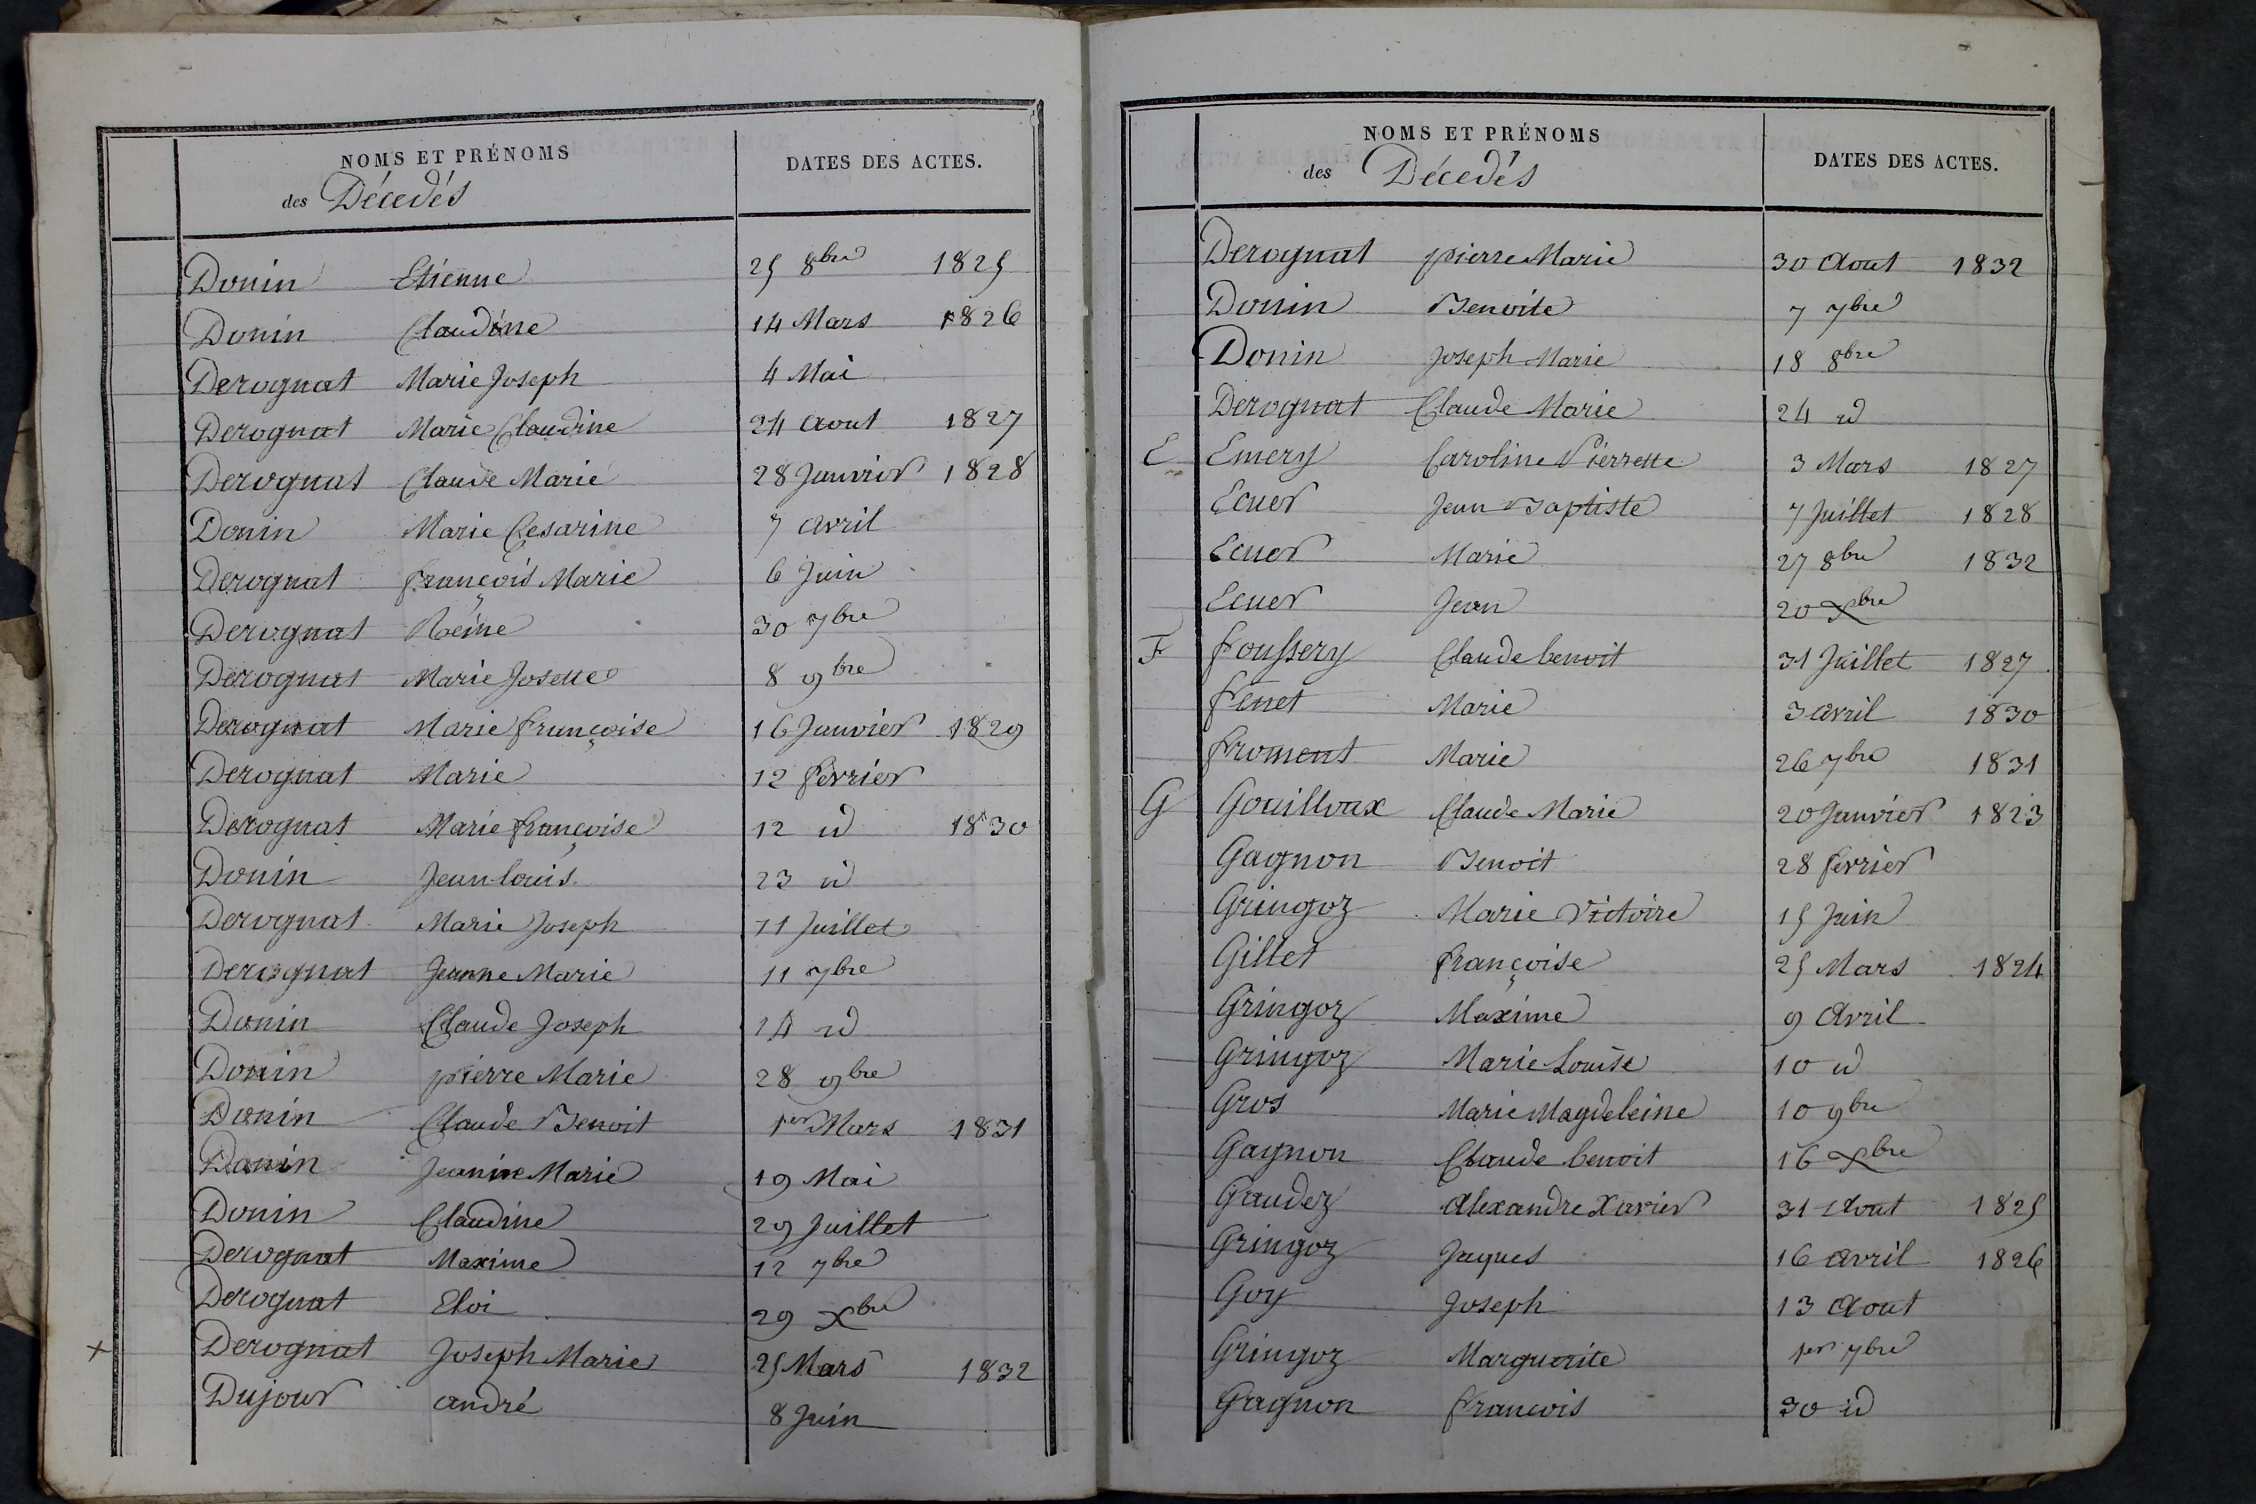 NOMS ET PRÉNOMS
des Décedés
DATES DES ACTES.
Donin Etienne 25 8bre 1825
Donin Claudine 14 Mars 1826
Derognat Marie Joseph 4 Mai
Derognat Marie Claudine 24 aout 1827
Derognat Claude Marie 28 Janvier 1828
Donin Marie Cesarine 7 avril
Derognat françois Marie 6 Juin
Derognat Reine 30 7bre
Derognat Marie Josette 8 9bre
Derognat Marie françoise 16 Janvier 1829
Derognat Marie 12 fevrier
Derognat Marie françoise 12 id 1830
Donin Jean louis 23 id
Derognat Marie Joseph 11 Juillet
Derognat Jeanne Marie 11 7bre
Donin Claude Joseph 14 id
Donin pierre Marie 28 9bre
Donin Claude Benoit 1er Mars 1831
Donin Jeanine Marie 19 Mai
Donin Claudine 29 Juillet
Derognat Maxime 12 7bre
Derognat Eloi 29 Xbre
+ Derognat Joseph Marie 25 Mars 1832
Dujour andré 8 Juin
NOMS ET PRÉNOMS
des Décedés
DATES DES ACTES.
Derognat pierre Marie 30 Aout 1832
Donin Benoite 7 7bre
Donin Joseph Marie 18 8bre
Derognat Claude Marie 24 id
E Emery Caroline Pierrette 3 Mars 1827
Ecuer Jean Baptiste 7 Juillet 1828
Ecuer Marie 27 8bre 1832
Ecuer Jean 20 Xbre
F foussery Claude benoit 31 Juillet 1827
fenet Marie 3 avril 1830
froment Marie 26 7bre 1831
G Gouilloux Claude Marie 20 Janvier 1823
Gagnon Benoit 28 fevrier
Gringoz Marie Victoire 15 Juin
Gillet françoise 25 Mars 1824
Gringoz Maxime 9 Avril
Gringoz Marie Louise 10 id
Gros Marie Magdeleine 10 9bre
Gagnon Claude benoit 16 Xbre
Gaudez Alexandre Xavier 31 Aout 1825
Gringoz Jaques 16 avril 1826
Goy Joseph 13 Aout
Gringoz Marguerite 1er 7bre
Gagnon francois 30 id